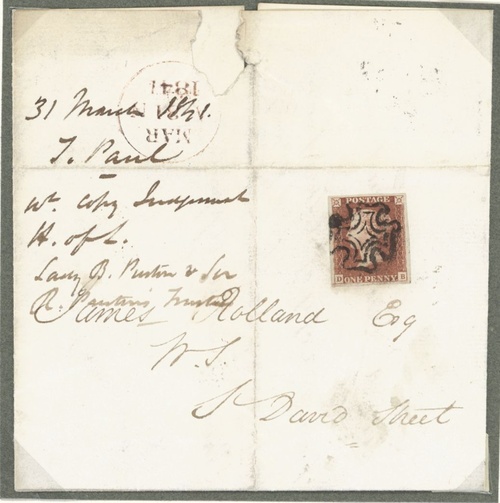 31 March 1841.
T. Paul
Wt. Copy Judgment
H. of L.
Lady B. &
R.
MAR
1841
POSTAGE
ONE PENNY
D
James Holland Esq
W.S
St David Street